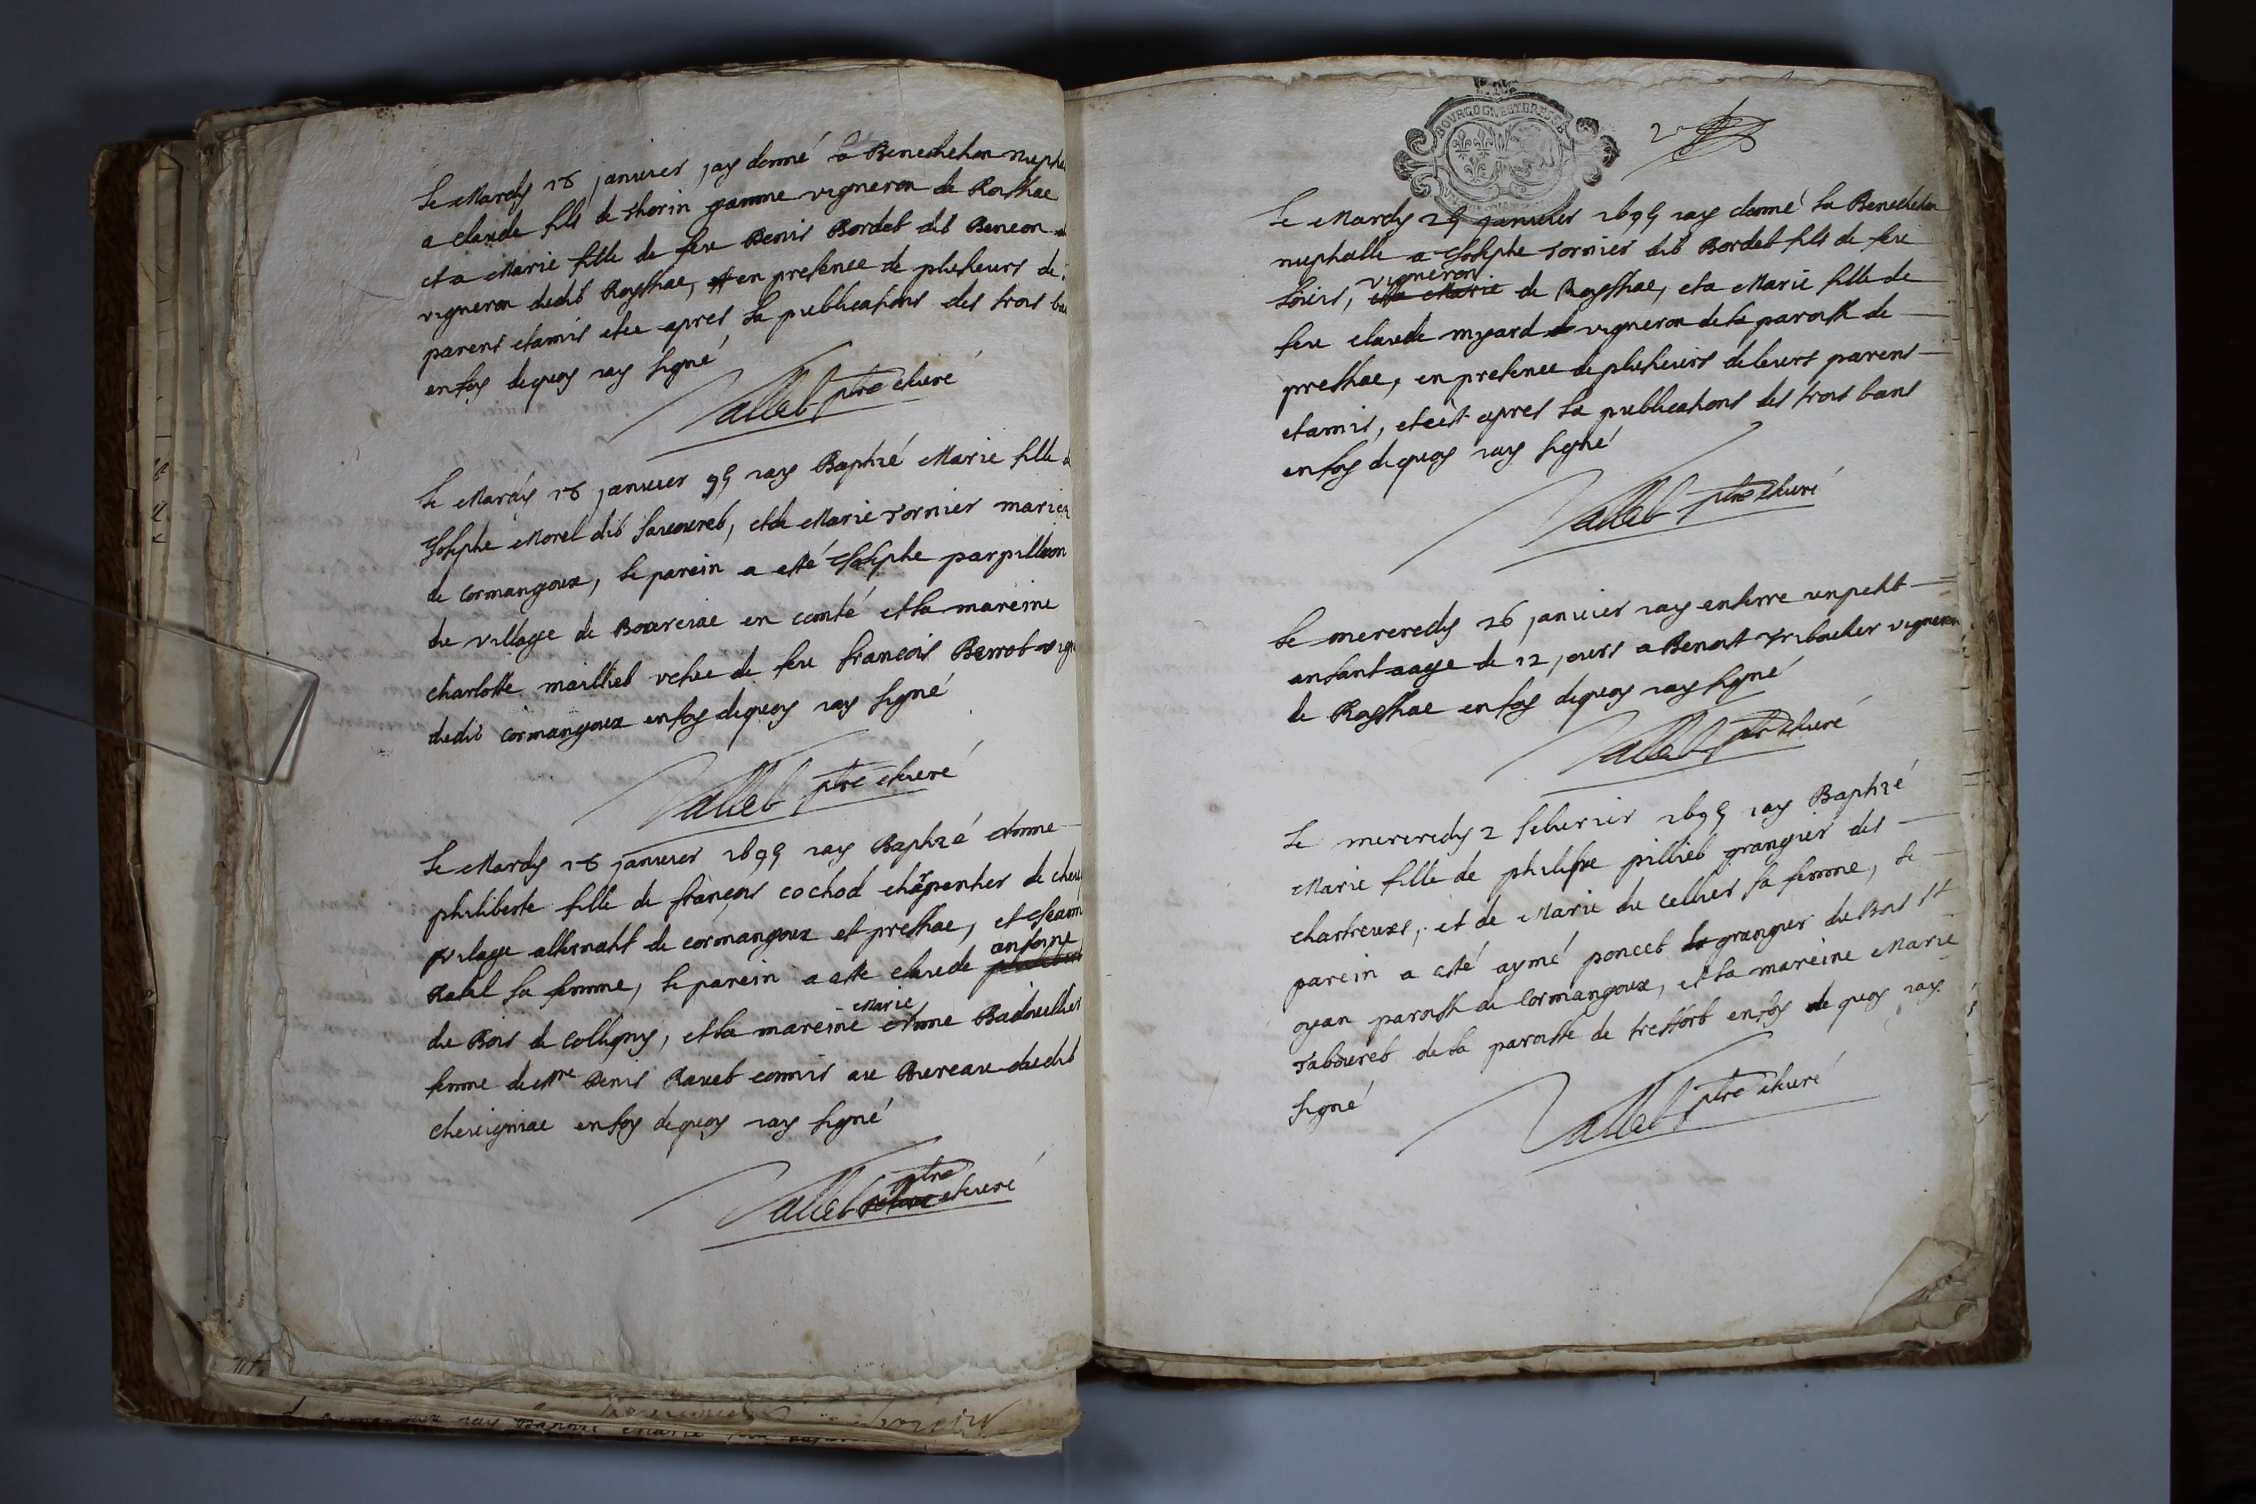 Le Mardy 18 janvier jay donné la Benediction nuptia
a claude fils de thorin gamme vigneron de Roissiac
et a Marie fille de feu Denis Bordet dit Bencon
vigneron dudit Royssiac, et en presence de plusieurs de
parens et amis et ce apres la publications des trois ba
en foy dequoy jay signé
Vallet ptre et curé
Le Mardy 18 janvier 99 jay Baptizé Marie fille
Joseph Morel dit Lacouret, et de Marie Tornier mariez
de Cormangoux, le parein a esté Joseph parpillon
du village de Bourcia en comté et la mareine
charlotte mailliet vefve de feu francois Berrot vig
dudit Cormangoux en foy dequoy jay signé
Vallet ptre et curé
Le Mardy 18 janvier 1699 jay Baptizé Anne
philiberte fille de françois cochod charpentier de chev
village alternatif de cormangoux et pressiac, et Jeann
Ratel sa femme, le parein a esté claude antoine
du Bois de Colligny, et la mareine Marie Anne Badouillier
femme de Mre Denis Ravet commis au Bureau dudit
chevigniac en foy dequoy jay signé
Vallet ptre et curé
BOURGOGNE ET BRESSE
2e
Le Mardy 25 janvier 1699 jay donné la Benediction
nuptialle a Joseph Tornier dit Bordet fils de feu
Louis, vigneron de Royssiac, et a Marie fille de
feu claude myard vigneron de la paroisse de
pressiac, en presence de plusieurs de leurs parens
et amis, et c'est apres la publications des trois bans
en foy dequoy jay signé
Vallet ptre et curé
Le mercredy 26 janvier jay enterre un petit
enfant aage de 12 jours a Benoit Triboulier vigneron
de Royssiac en foy dequoy jay signé
Vallet ptre et curé
Le mercredy 2 febvrier 1699 jay Baptizé
Marie fille de philippe pilliet grangier des
chartreux, et de Marie du cellier sa femme, le
parein a esté aymé poncet grangier du Bois St
oyan paroisse de Cormangoux, et la mareine Marie
Tabouret de la paroisse de treffort en foy de quoy jay
signé
Vallet ptre et curé